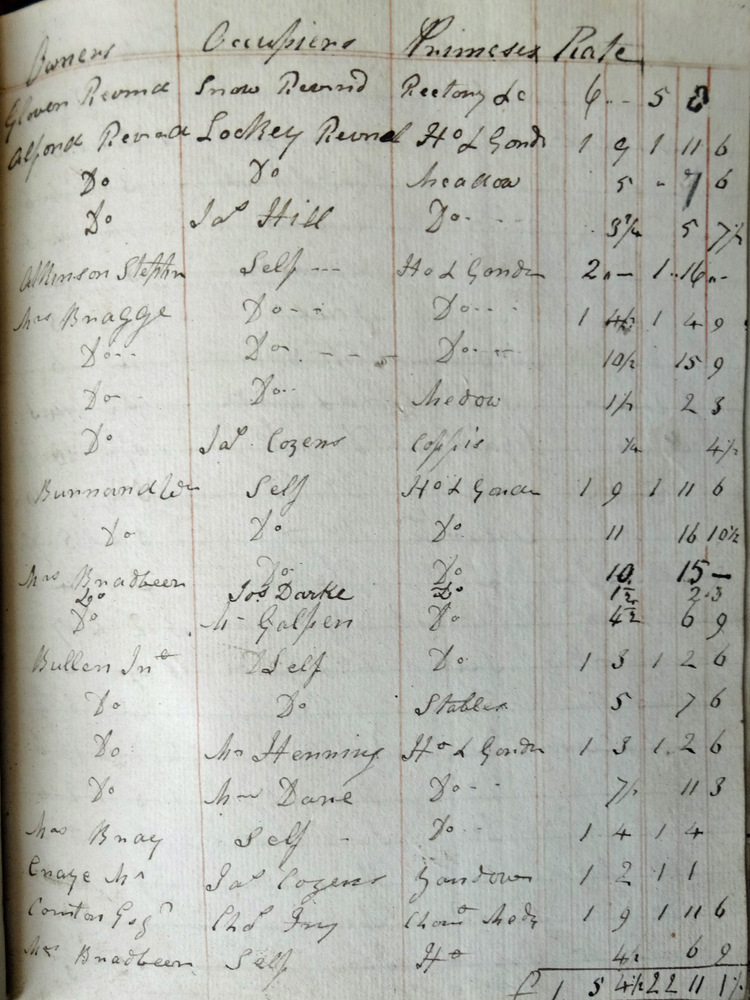 Owners Occupiers Primeses Rate
Glover Revrnd Snow Revrnd Rectory &c 6 .. - 5 8
Alford Revrnd Lockey Revrnd Ho & Gardn 1 9 1 11 6
Do Do Meadow 5 - 7 6
Do Jas Hill Do - - 3 3/4 5 7 1/2
Atkinson Stephn Self --- Ho & Garden 2 " - 1 .. 16 " -
Mrs Bragge Do - - Do - - - 1 4 1/2 1 4 9
Do - - Do - - - - Do - - 10 1/2 15 9
Do - Do - - Medow 1 1/2 2 3
Do Jas Cozens Coppis 1/4 4 1/2
Burnand Wm Self Ho & Garden 1 9 1 11 6
Do Do Do 11 16 10 1/2
Mrs Bradbeer Do Do 10 15 -
Do Jos Darke Do 1 1/2 2 3
Do Mr Galpen Do 4 1/2 6 9
Bullen Self Do 1 3 1 2 6
Do Do Stables 5 7 6
Do Mr Henning Ho & Garden 1 3 1 2 6
Do Mrs Dare Do - - 7 1/2 11 3
Mrs Bray Self - Do - - 1 4 1 4
Mr Jas Cozens 1 2 1 1
Esqr Chs Fry 1 9 1 11 6
Mrs Bradbeer Self Ho 4 1/2 6 9
£ 1 5 4 1/2 22 11 1 1/2